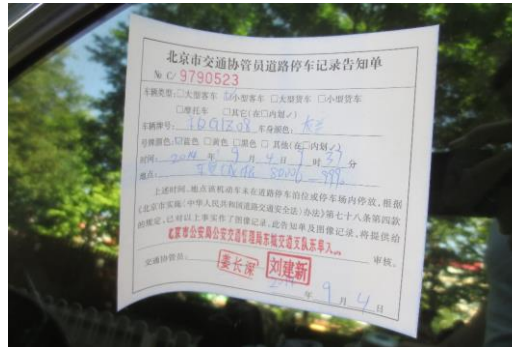 北京市交通协管员道路停车记录告知单
№ C/ 9790523
车辆类型:□大型客车 ☑小型客车 □大型货车 □小型货车
□摩托车 □其它(在□内划✓)
车辆牌号: 车身颜色:
号牌颜色:☑蓝色 □黄色 □黑色 □其他(在□内划✓)
时间: 2014 年 9 月 4 日 9 时 37 分
地点:
上述时间、地点该机动车未在道路停车泊位或停车场内停放,根据
《北京市实施〈中华人民共和国道路交通安全法〉办法》第七十八条第四款
的规定,已对以上事实作了图像记录,此告知单及图像记录,将提供给
北京市公安局公安交通管理局东城交通支队东单 审核。
交通协管员: 娄长深 刘建新
2014 年 9 月 4 日